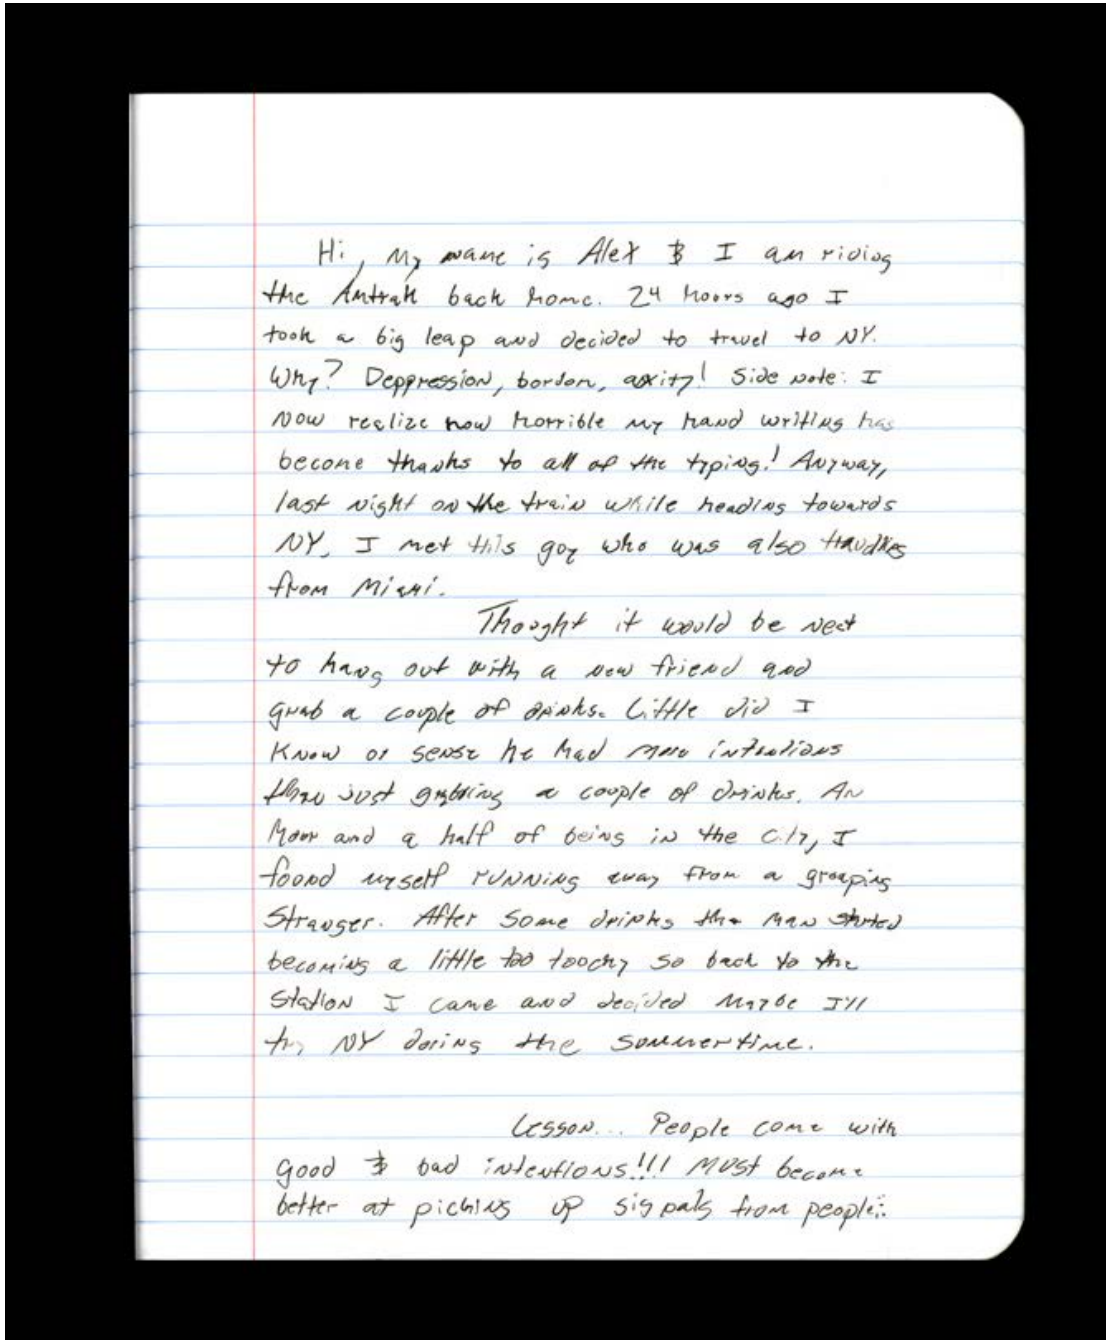 Hi, My name is Alex & I am riding
the Amtrak back home. 24 hours ago I
took a big leap and decided to travel to NY.
Why? Deppression, bordom, axity! Side note: I
now realize how horrible my hand writing has
become thanks to all of the typing! Anyway,
last night on the train while heading towards
NY, I met this guy who was also
from Miami.
Thought it would be neat
to hang out with a new friend and
grab a couple of drinks. Little did I
know or sense he had more intentions
than just grabbing a couple of drinks. An
hour and a half of being in the city, I
found myself running away from a groaping
stranger. After some drinks the man started
becoming a little too toochy so back to the
station I came and decided maybe I'll
try NY during the summertime.
Lesson... People come with
good & bad intentions!!! Must become
better at picking up signals from people.